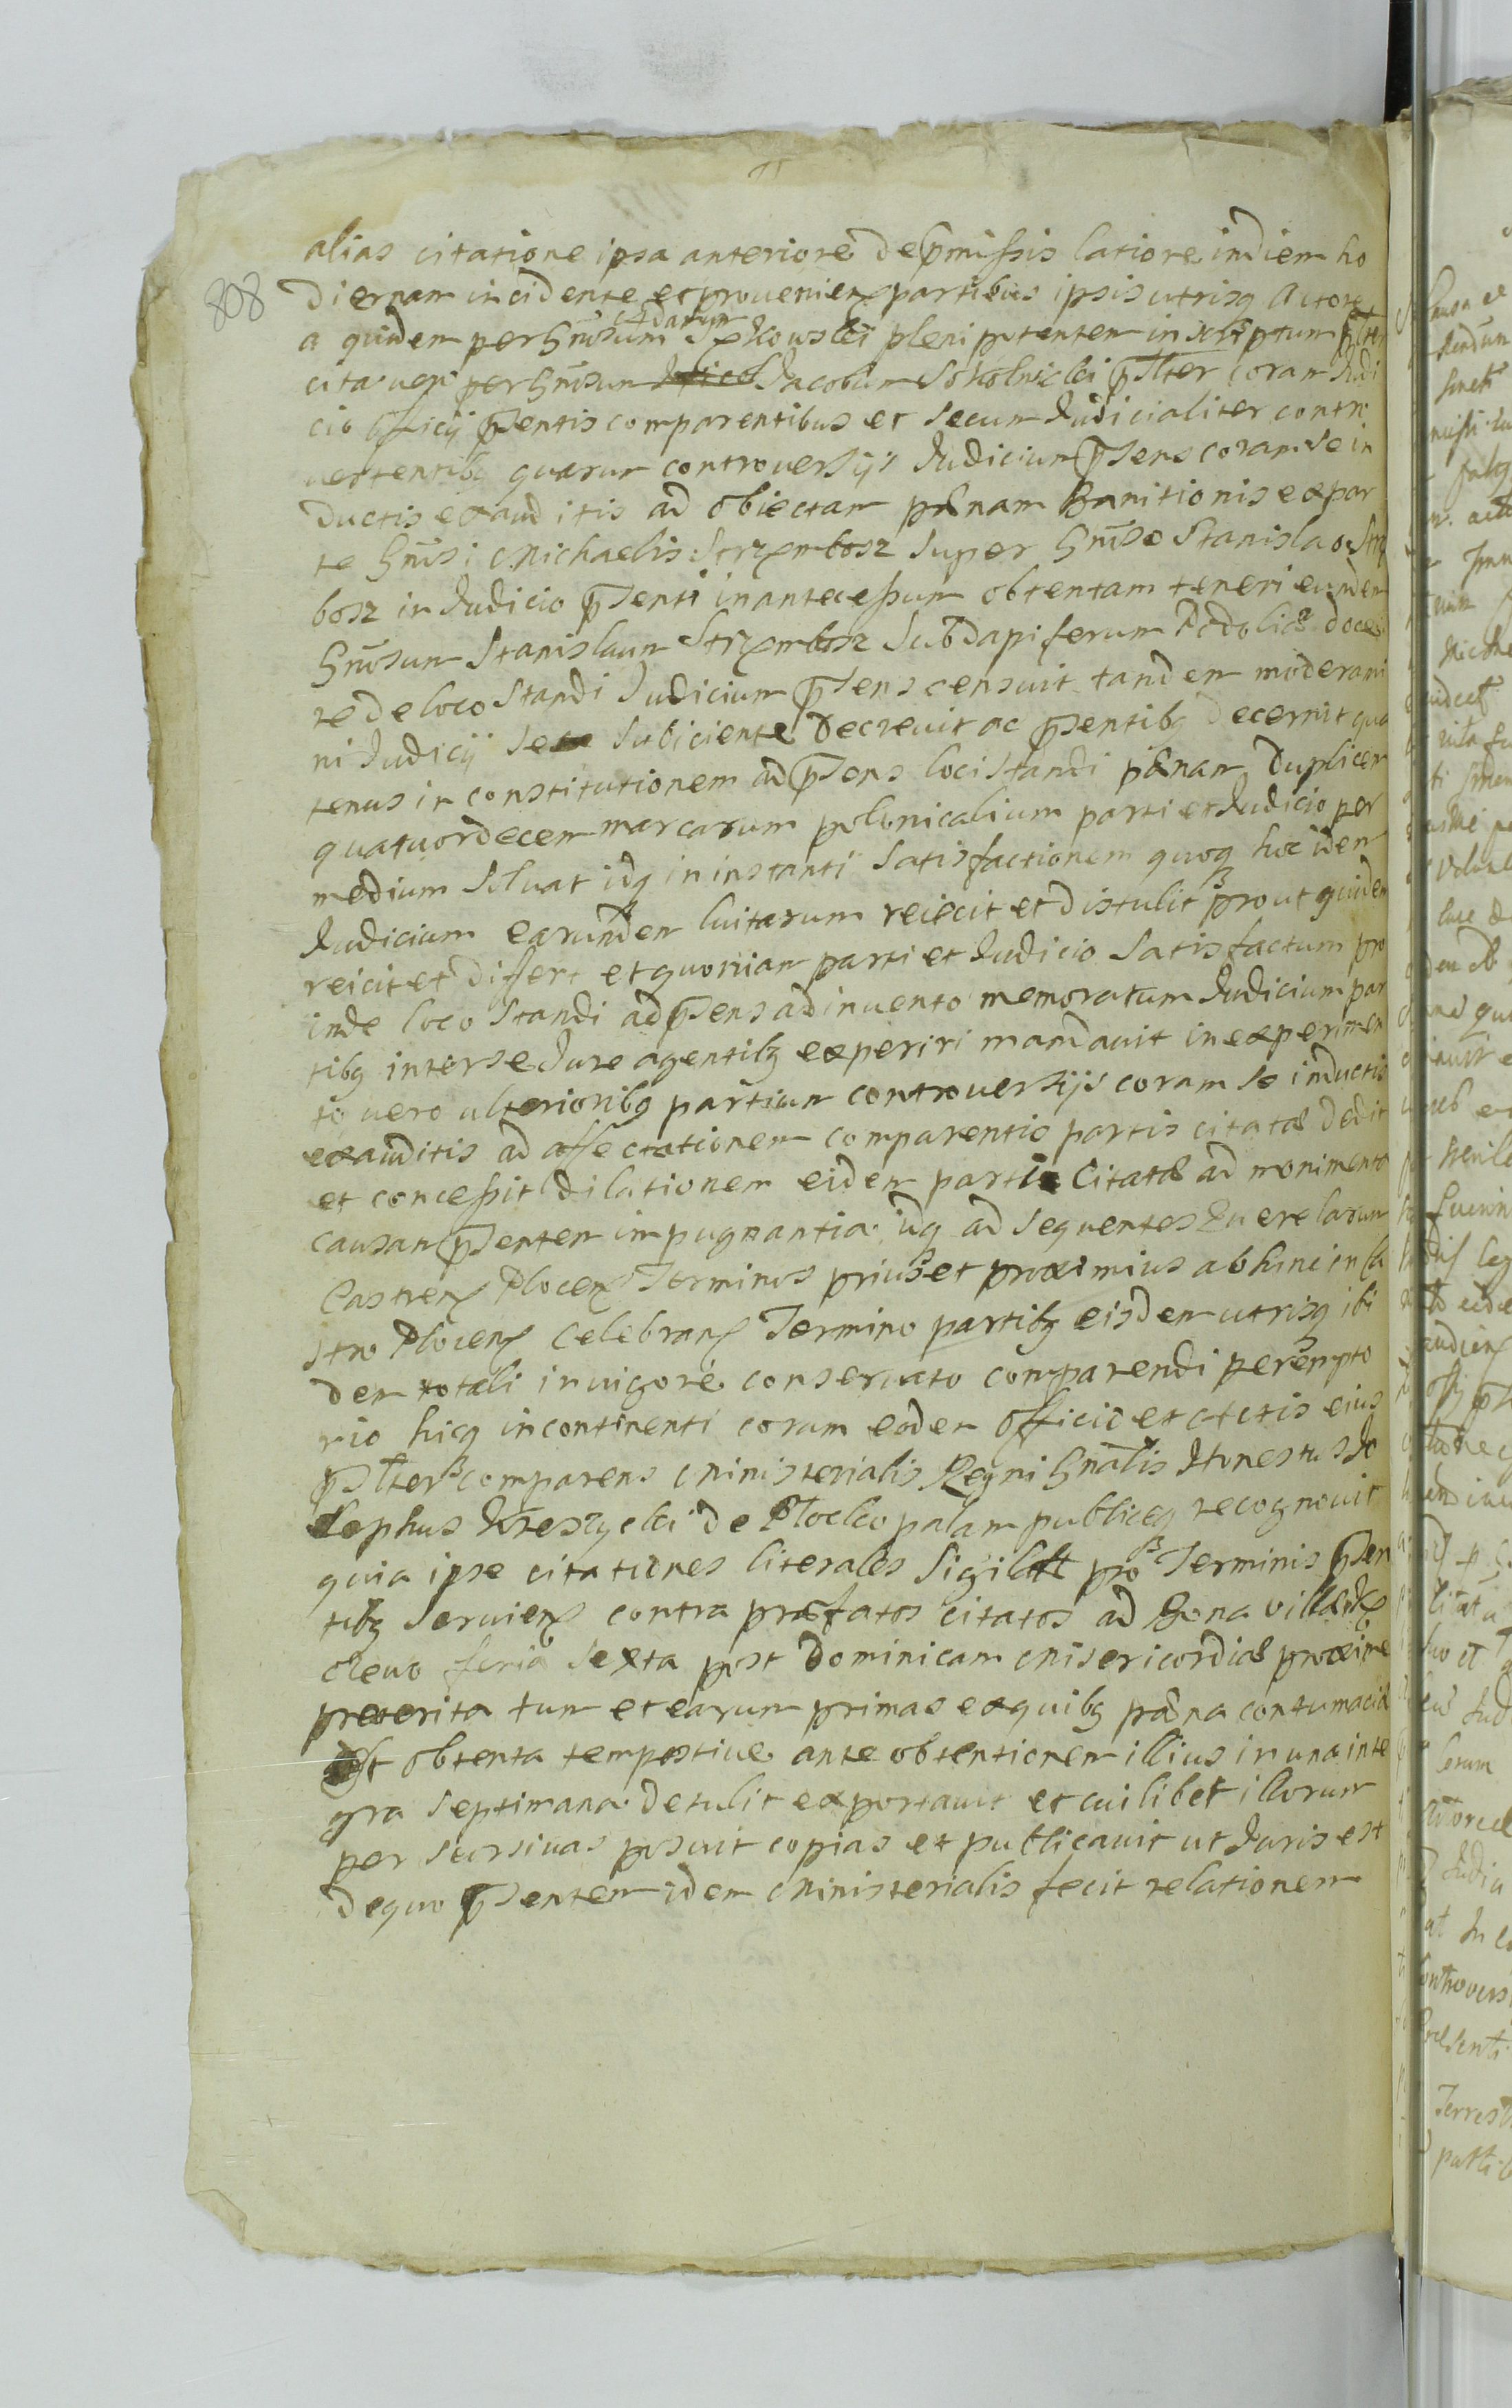 808
alias citatione ipsa anteriore de pmissis latiore in diem ho
diernam incidente et provenien partibus ipsis utrisq Actore
a quidem per Gnosum Adamum Szkowski plenipotentem inscriptum
cita vero per Gnosum Jacobum Sokolnicki pslter coram Judi
cio Officij psentis comparentibus et secum Judicialiter contro
vertentibq quarum controversijs Judicium psens coram se in
ductis exauditis ad obiectam pænam Banitionis ex par
te Gnosi Michaelis Strzembosz super Gnoso Stanislao Strze
bosz in Judicio psenti in antecessum obtentam teneri eundem
Gnosum Stanislaum Strzembosz Subdapiferum Podoliæ doce
re de loco standi Judicium psens censuit tandem moderami
ni Judicij se subiciente decrevit ac psentibq decernit qua
tenus in constitutionem ad psens loci standi pænam duplicem
quatuordecem marcarum polonicalium parti et Judicio per
medium solvat idq in instanti satisfactionem quoq hoc idem
Judicium earundem luitarum reiecit et distulit prout quidem
reicit et differt et quoniam parti et Judicio satisfactum pro
inde loco standi ad psens adinvento memoratum Judicium par
tibq inter se Jure agentibq experiri mandavit in experimen
to vero ulterioribq partium controversijs coram se inductis
exauditis ad affectationem comparentis partis citatæ dedit
et concessit dilationem eidem parti Citatæ ad monimenta
causam psentem impugnantia idq ad sequentes Querelarum
Castren Plocen Terminos prius et proximius abhinc in Ca
stro Plocen celebran Termino partibq eisdem utrisq ibi
dem totali in vigore conservato comparendi perempto
rio hicq incontinenti coram eodem Officio et Actis eius
pslter comparens Ministerialis Regni Gnalis Honestus Jo
sephus Kreszycki de Plocko palam publiceq recognovit
quia ipse citationes literales sigilatt pro Terminis psen
tibq servien contra præfatos citatos ad Bona villæ
olewo feria sexta post Dominicam Misericordiæ proxime
preterita tum et earum primas ex quibq pæna contumaciæ
est obtenta tempestive ante obtentionem illius in una inte
gra septimana detulit exportavit et cuilibet illorum
per scorsivas posuit copias et publicavit ut Juris est
de quo psentem idem Ministerialis fecit relationem